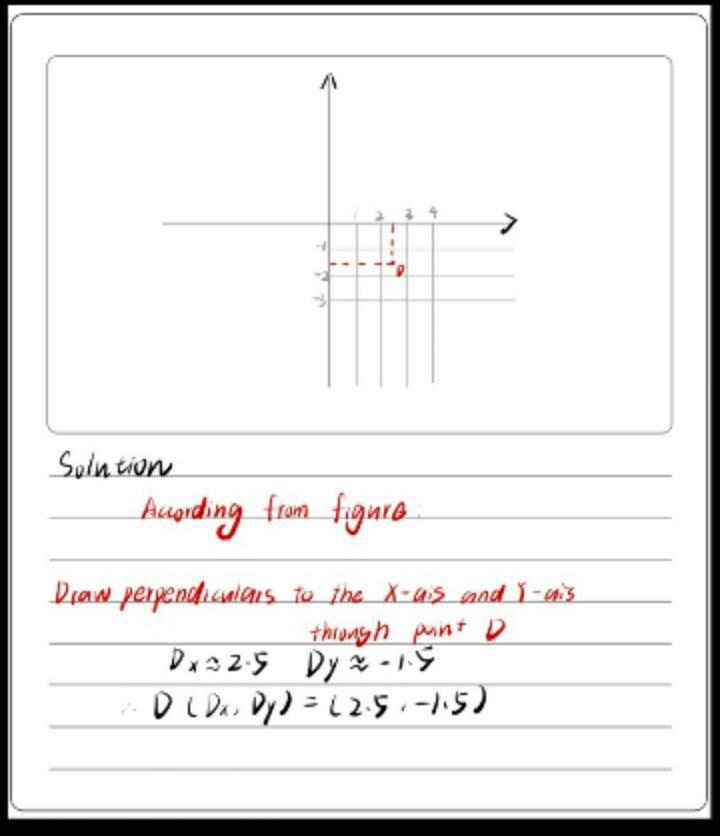 1 2 3 4
-1
D
-2
-3
Solution
Acording from figure:
Draw perpendiculars to the X-ais and Y-ais
through point D
Dx ≈ 2.5 Dy ≈ -1.5
∴ D (Dx, Dy) = (2.5, -1.5)